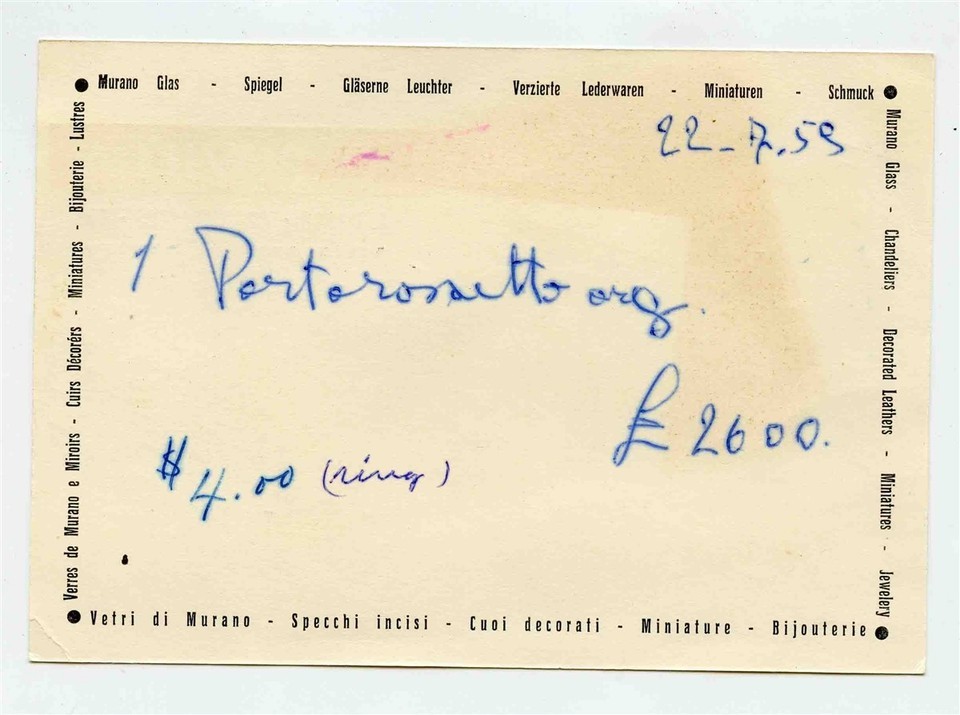 Murano Glas - Spiegel - Gläserne Leuchter - Verzierte Lederwaren - Miniaturen - Schmuck
Murano Glass - Chandeliers - Decorated Leathers - Miniatures - Jewelery
Verres de Murano e Miroirs - Cuirs Décorérs - Miniatures - Bijouterie - Lustres
22-7.59
1 Portarossetto arg.
£ 2600.
$4.00 (ring)
Vetri di Murano - Specchi incisi - Cuoi decorati - Miniature - Bijouterie